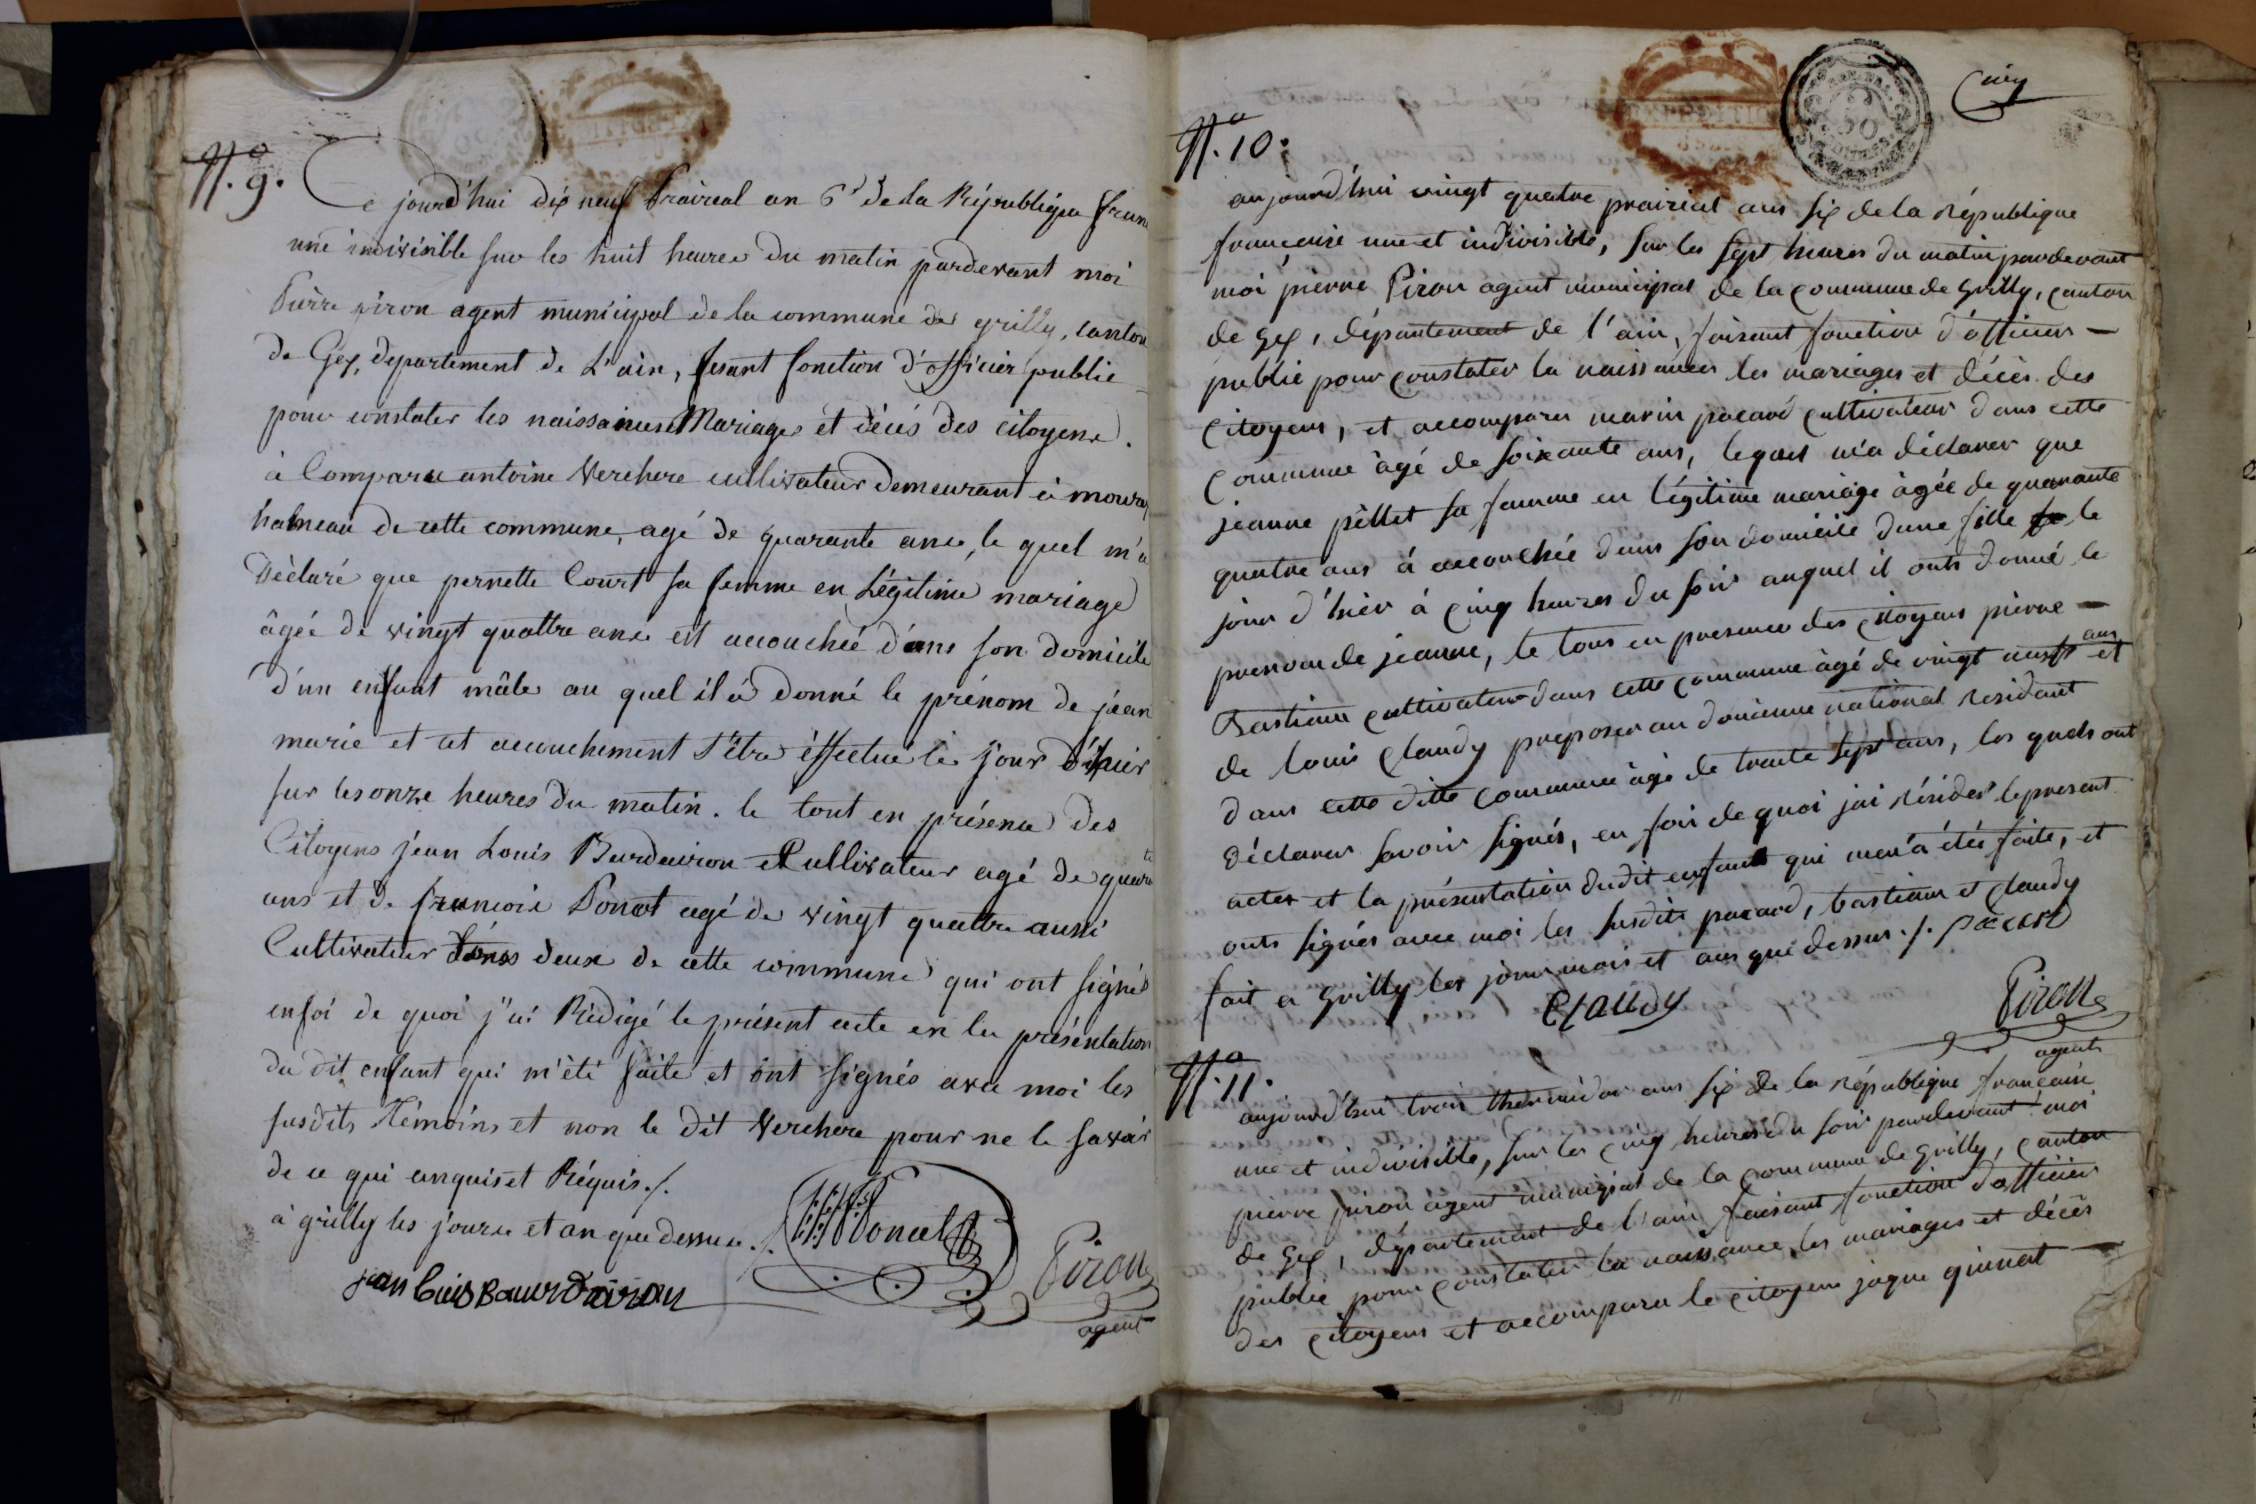 N.º 9.
Ce jourd'hui dix neuf Prairéal an 6e de la République fran
une indivisible sur les huit heures du matin pardevant moi
Pierre piron agent municipal de la commune de grilly, canton
de Gex, departement de L'ain, fesant fonction d'officier public
pour constater les naissances Mariages et décés des citoyens.
à Comparu antoine Verchere cultivateur demeurant à mourex
hameau de cette commune, agé de quarante ans, le quel m'a
Déclaré que pernette Court sa femme en Légitime mariage
âgée de vingt quattre ans est accouchée dans son domicile
d'un enfant mâle au quel il a donné le prénom de jean
marie et cet accouchement s'être éffectué le jour d'hier
sur les onze heures du matin. le tout en présence des
Citoyens jean Louis Burdairon Cultivateur agé de quarte
ans et de francois Poncet agé de vingt quattre aussi
Cultivateur tous deux de cette commune qui ont signé
en foi de quoi j'ai Rédigé le présent acte en la présentation
du dit enfant qui m'été faite et ont signés avec moi les
susdits Témoins et non le dit Verchere pour ne le savoir
de ce qui enquis et Réquis./.
à grilly les jours et an que dessus./.
Poncet
Piron
agent
jean Louis Bourdairon
cinq
N.º 10.
aujourd'hui vingt quatre prairial ans six de la République
française une et indivisible, sur les sept heures du matin pardevant
moi pierre Piron agent municipal de la commune de Grilly, canton
de Gex, département de l'ain, faisant fonction d'officier
public pour constater la naissances les mariages et décès des
Citoyens, et accomparu marin pacard cultivateur dans cette
Commune âgé de soixante ans, lequel m'a déclarer que
jeanne pèllet sa famme en légitime mariage âgée de quarante
quatre ans á accouchée dans son domicile d'une fille le
jour d'hier á cinq heures du soir auquel il onts donné le
prenom de jeanne, le tous en presence des citoyens pierre
Bastian cultivateur dans cette commune âgé de vingt neuf ans et
de louis Claudy preposer au domaine national residant
dans cette ditte commune âgé de trante sept ans, les quels ont
déclarer savoir signés, en foi de quoi jai rédider le present
acter et la présentation dudit enfant qui men'a étée faite, et
onts signés avec moi les susdits pacard, bastian et Claudy
fait a Grilly les jour mois et ans que dessus./. Paccard
Claudy
Piron
agent
N.º 11.
aujourd'hui trois thermidor ans six de la République française
une et indivisible, sur les cinq heures du soir pardevant moi
pierre piron agent municipal de la commune de Grilly, canton
de Gex, département de l'ain faisant fonction d'officier
public pour constater la naissance, les mariages et décès
des citoyens et accomparu le citoyen jaque guinat